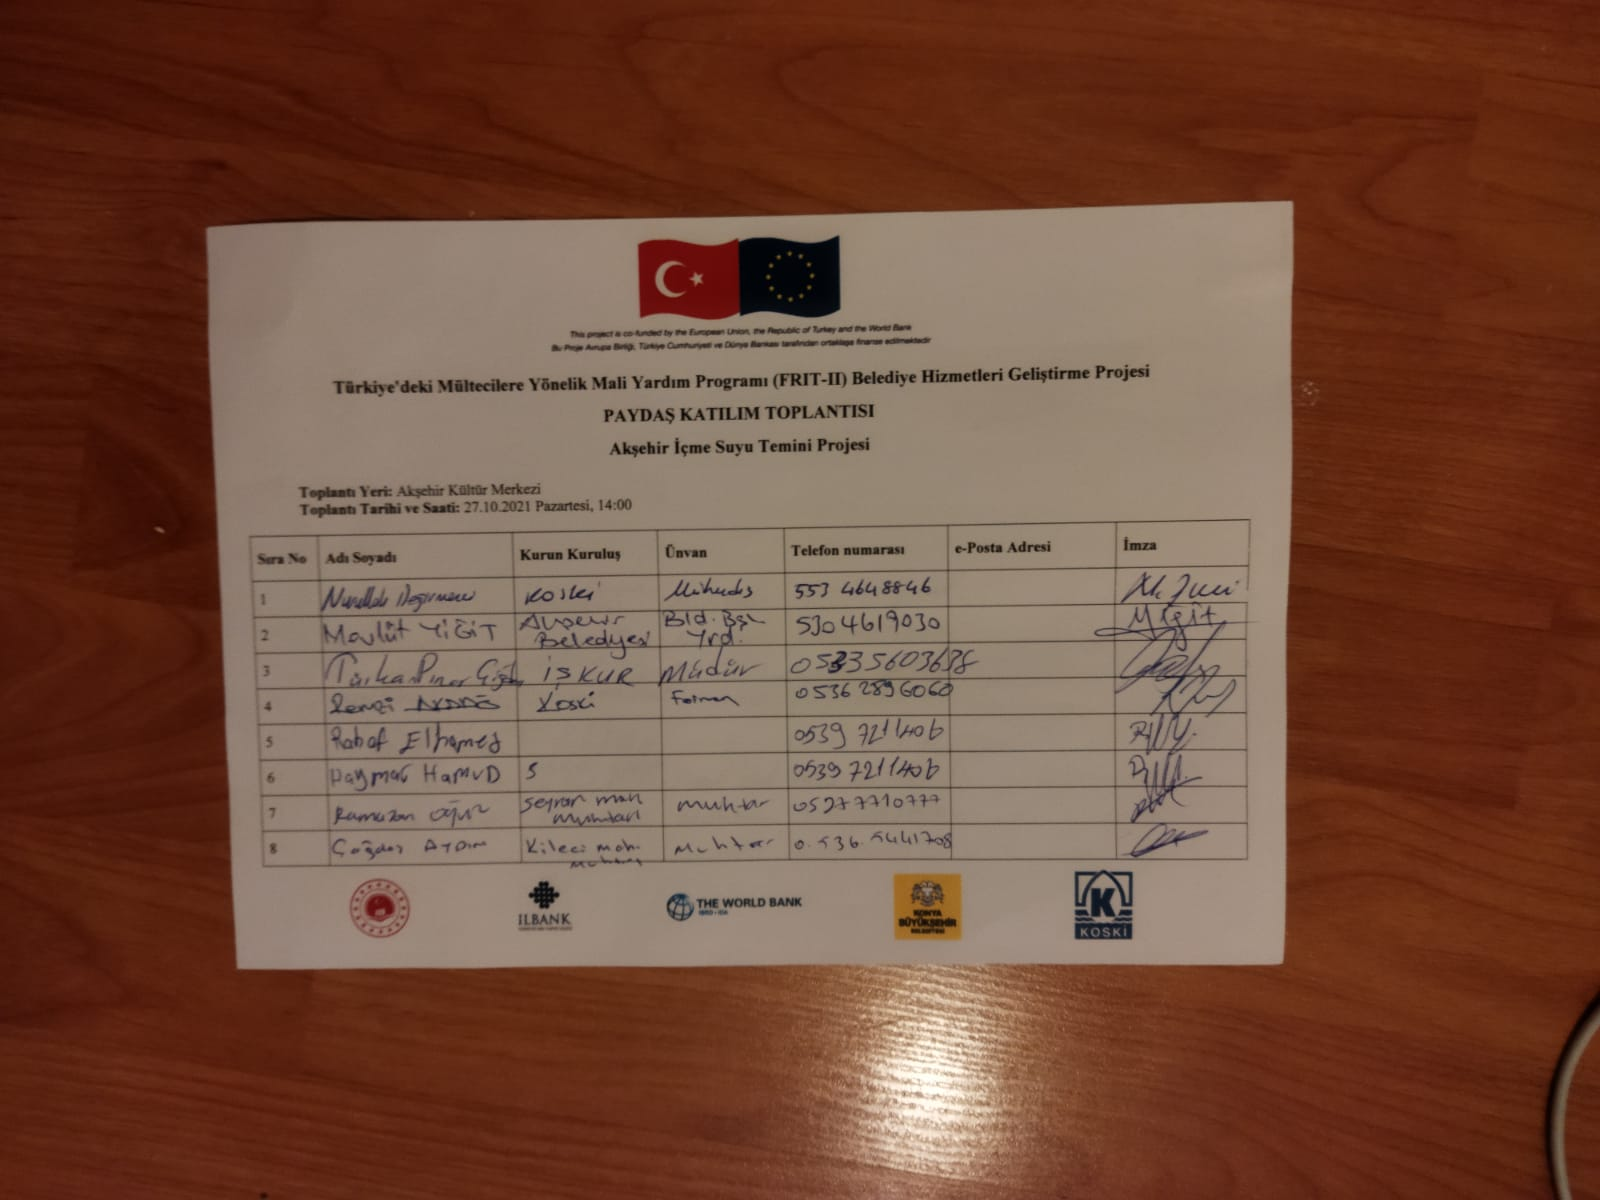 This project is co-funded by the European Union, the Republic of Turkey and the World Bank
Bu Proje Avrupa Birliği, Türkiye Cumhuriyeti ve Dünya Bankası tarafından ortaklaşa finanse edilmektedir
Türkiye'deki Mültecilere Yönelik Mali Yardım Programı (FRIT-II) Belediye Hizmetleri Geliştirme Projesi
PAYDAŞ KATILIM TOPLANTISI
Akşehir İçme Suyu Temini Projesi
Toplantı Yeri: Akşehir Kültür Merkezi
Toplantı Tarihi ve Saati: 27.10.2021 Pazartesi, 14:00
Sıra No Adı Soyadı Kurun Kuruluş Ünvan Telefon numarası e-Posta Adresi İmza
1 Koski 553 4648846
2 Mevlüt YİĞİT Akşehir Belediyesi Bld. Bşk. Yrd. 530 4619030 Myiğit
3 İŞKUR Müdür
4 Remzi Koski 0536 2896060
5 Rahaf 0539 7211406
6 HAMUD 5 0539 7211406
7 Ramazan Seyran mah muhtar 05277710777
8 Çağdaş AYDIN Kileci mah. Muhtar 0.536.5441708
ILBANK
THE WORLD BANK
IBRD • IDA
KONYA
BÜYÜKŞEHİR
BELEDİYESİ
K
KOSKİ